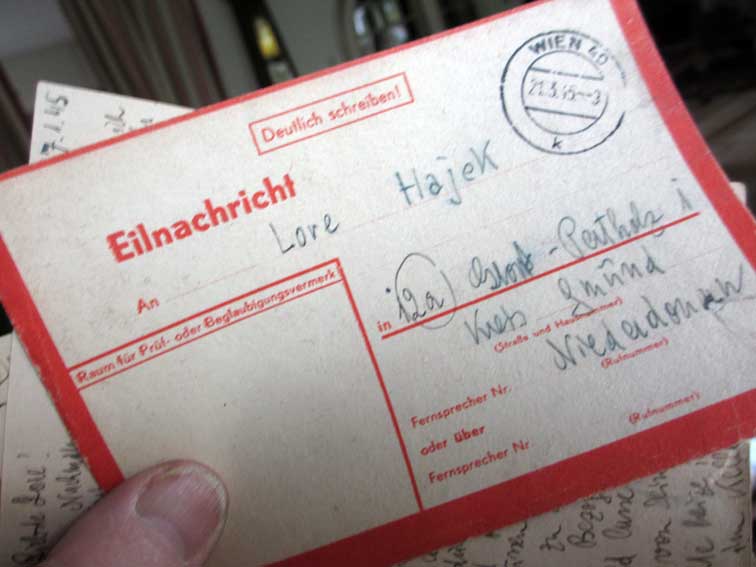 Deutlich schreiben!
WIEN 40
21.3.45--3
k
Eilnachricht
An Lore Hajek
in 12a Gross-Pertholz i
(Straße und Hausnummer)
Kreis Gmünd
Niederdonau
(Rufnummer)
Raum für Prüf- oder Beglaubigungsvermerk
Fernsprecher Nr.
oder über
(Rufnummer)
Fernsprecher Nr.
7.1.45
Lore!